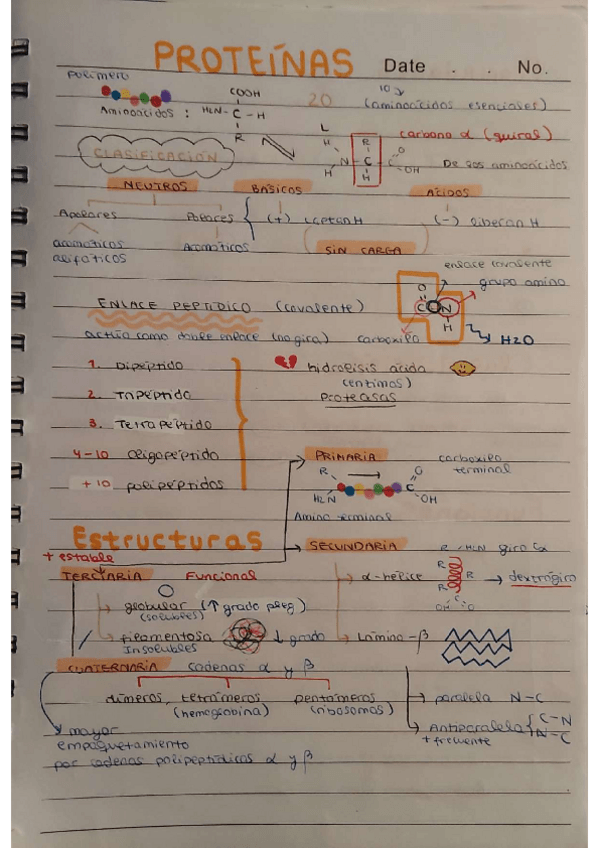 PROTEÍNAS Date . . No.
Polímero
Aminoácidos :
COOH
H2N - C - H
R
20
10
(aminoácidos esenciales)
L
H
N - C - C
H
R
H
O
OH
carbono α (quiral)
De los aminoácidos
CLASIFICACIÓN
NEUTROS BÁSICOS ÁCIDOS
Apolares Polares (+) captan H (-) liberan H
aromáticos Aromáticos
alifáticos
SIN CARGA
enlace covalente
grupo amino
O
C N
H
ENLACE PEPTÍDICO (covalente)
actúa como doble enlace (no gira) carboxilo H2O
1. Dipéptido
2. Tripéptido
3. Tetrapéptido
4-10 Oligopéptido
+10 polipéptidos
hidrólisis ácida
(enzimas)
Proteasas
PRIMARIA carboxilo
terminal
R
H2N
C
O
OH
Amino terminal
Estructuras
+ estable
SECUNDARIA R HCN giro Cα
TERCIARIA Funcional
α-hélice R R dextrógiro
OH C O
globular (↑ grado pleg)
(solubles)
filamentosa ↓ grado
Insolubles
Lámina-β
CUATERNARIA cadenas α y β
dímeros, tetrámeros pentámeros
(hemoglobina) (ribosomas)
paralela N-C
Antiparalela { C-N
N-C
+ frecuente
mayor
empaquetamiento
por cadenas polipeptídicas α y β